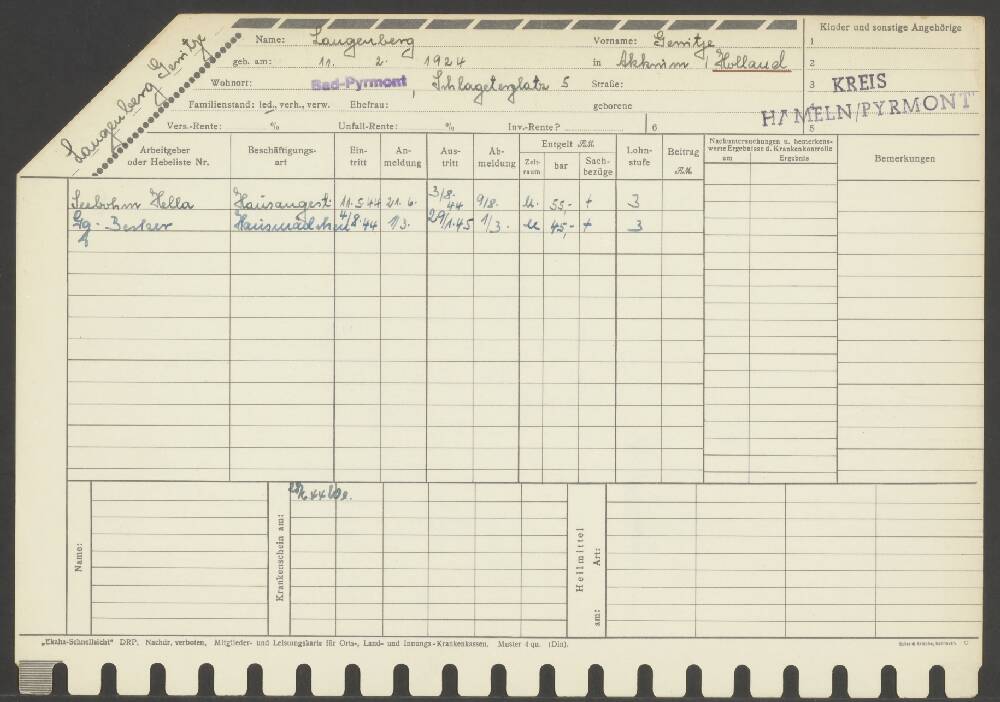 Langenberg Gerritje
Name: Langenberg Vorname: Gerritje Kinder und sonstige Angehörige
1
geb. am: 11. 2. 1924 in Akkrum, Holland 2
Wohnort: Bad-Pyrmont, Schlageterplatz 5 Straße: 3 KREIS
Familienstand: led., verh., verw. Ehefrau: geborene HAMELN/PYRMONT
Vers.-Rente: % Unfall-Rente: % Inv.-Rente? 6 5
Arbeitgeber oder Hebeliste Nr. Beschäftigungsart Eintritt Anmeldung Austritt Abmeldung Entgelt RM. Zeitraum bar Sachbezüge Lohnstufe Beitrag RM. Nachuntersuchungen u. bemerkenswerte Ergebnisse d. Krankenkontrolle am Ergebnis Bemerkungen
Seebohm Hella Hausangest. 11.5.44 21.6. 3/8.44 9/8. M. 55,- + 3
Hausmädchen 4/8.44 1/3. 29/1.45 1/3. M 45,- + 3
Name: Krankenschein am: Heilmittel Art: am:
„Ekaha-Schnellsicht“ DRP. Nachdr. verboten. Mitglieder- und Leistungskarte für Orts-, Land- und Innungs-Krankenkassen. Muster 4 qu. (Din).